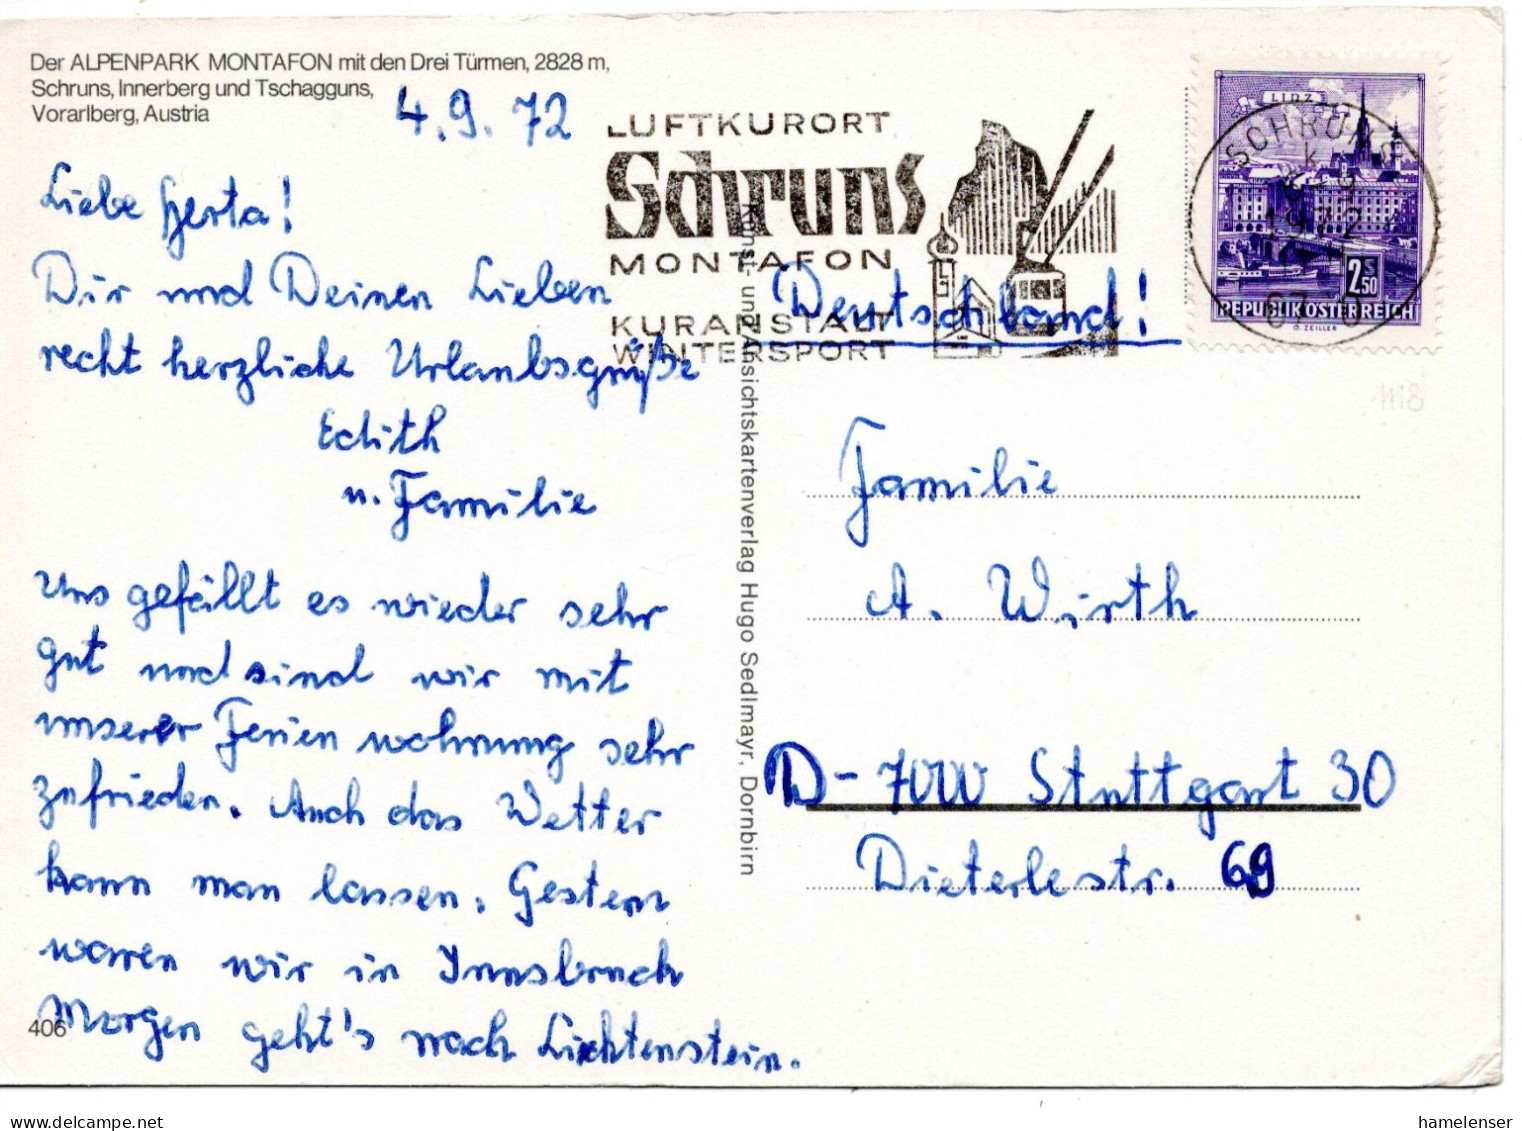 Der ALPENPARK MONTAFON mit den Drei Türmen, 2828 m,
Schruns, Innerberg und Tschagguns,
Vorarlberg, Austria
4.9.72
Liebe Herta!
Dir und Deinen Lieben
recht herzliche Urlaubsgrüße
Edith
u. Familie
Uns gefällt es wieder sehr
gut und sind wir mit
unserer Ferienwohnung sehr
zufrieden. Auch das Wetter
kann man lassen. Gestern
waren wir in Innsbruck
Morgen geht's nach Lichtenstein.
406
LUFTKURORT
Schruns
MONTAFON
KURANSTALT
WINTERSPORT
Kunst- und Ansichtskartenverlag Hugo Sedlmayr, Dornbirn
LINZ
SCHRUNS
2.50
S
REPUBLIK ÖSTERREICH
O. ZEILLER
Deutschland!
1118
Familie
A. Wirth
D-7000 Stuttgart 30
Dieterlestr. 69
hamelenser